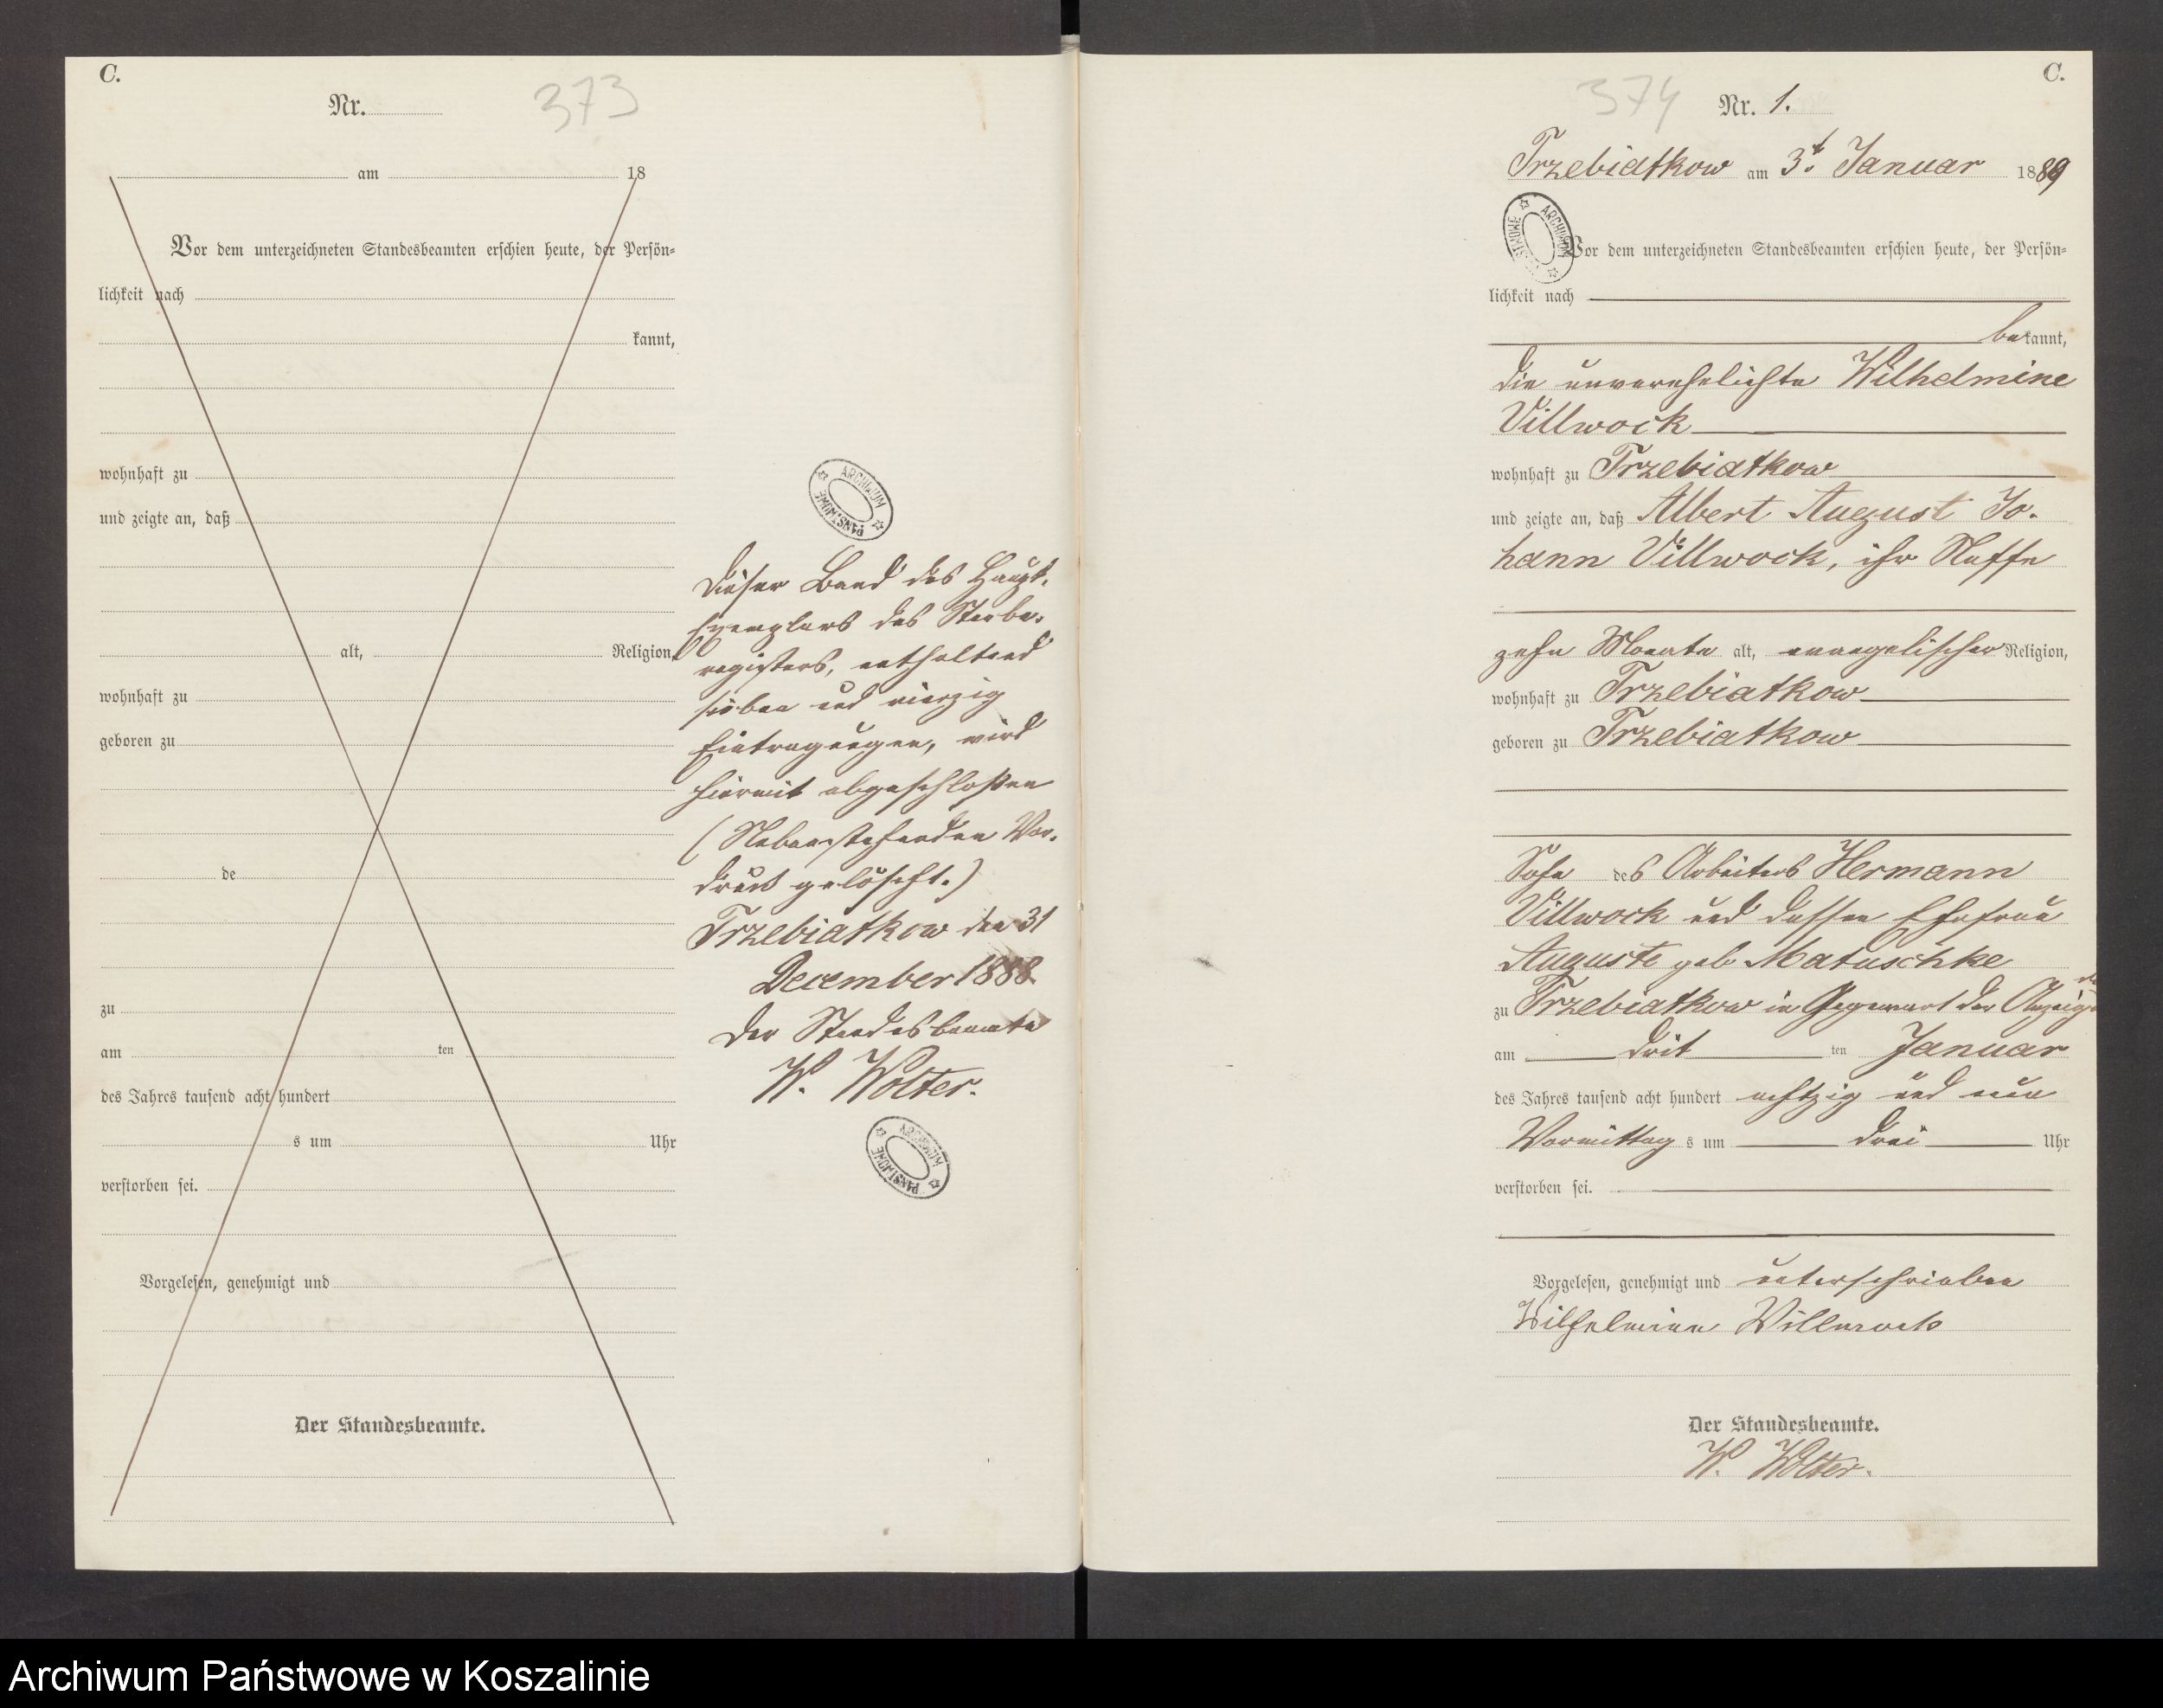 C.
Nr.
373
am 18
Vor dem unterzeichneten Standesbeamten erschien heute, der Persön=
lichkeit nach
kannt,
wohnhaft zu
und zeigte an, daß
alt, Religion,
wohnhaft zu
geboren zu
de
zu
am ten
des Jahres tausend acht hundert
s um Uhr
verstorben sei.
Vorgelesen, genehmigt und
Der Standesbeamte.
ARCHIWUM PAŃSTWOWE
Dieser Band des Haupt-
Exemplars des Sterbe-
registers, enthaltend
sieben und vierzig
Eintragungen, wird
hiermit abgeschloßen
(Nebenstehenden Vor-
druck gelöscht.)
Trzebiatkow den 31
December 1888
Der Standesbeamte
W. Wolter.
ARCHIWUM PAŃSTWOWE
C.
374
Nr. 1.
Trzebiatkow am 3t. Januar 1889
ARCHIWUM PAŃSTWOWE
Vor dem unterzeichneten Standesbeamten erschien heute, der Persön=
lichkeit nach
bekannt,
die unverehelichte Wilhelmine
Villwock
wohnhaft zu Trzebiatkow
und zeigte an, daß Albert August Jo-
hann Villwock, ihr Neffe
zehn Monate alt, evangelischer Religion,
wohnhaft zu Trzebiatkow
geboren zu Trzebiatkow
Sohn des Arbeiters Hermann
Villwock und dessen Ehefrau
Auguste geb. Matuschke
zu Trzebiatkow in Gegenwart der
am drit ten Januar
des Jahres tausend acht hundert achtzig und neun
Vormittag s um drei Uhr
verstorben sei.
Vorgelesen, genehmigt und unterschrieben
Wilhelmine Villwock
Der Standesbeamte.
W. Wolter.
Archiwum Państwowe w Koszalinie